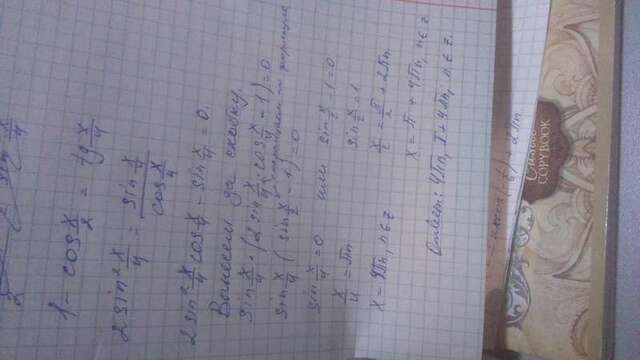 1 - cos x/2 = tg x/4
2 sin² x/4 = sin x/4 / cos x/4
2 sin² x/4 cos x/4 - sin x/4 = 0.
Вынесем за скобку.
sin x/4 · (2 sin x/4 · cos x/4 - 1) = 0
sin x/4 ( sin x/2 - 1) = 0
sin x/4 = 0 или sin x/2 - 1 = 0
x/4 = πn sin x/2 = 1
x = 4πn, n∈z x/2 = π/2 + 2πn
x = π + 4πn, n∈z
Ответ: 4πn, π + 4πn, n∈z.
COPYBOOK